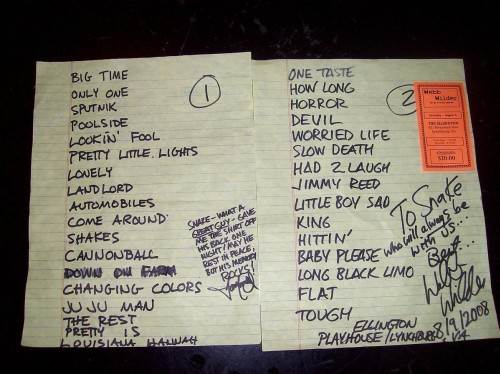 BIG TIME
ONLY ONE
SPUTNIK
POOLSIDE
LOOKIN' FOOL
PRETTY LITTLE LIGHTS
LOVELY
LANDLORD
AUTOMOBILES
COME AROUND
SHAKES
CANNONBALL
DOWN ON FARM
CHANGING COLORS
JU JU MAN
THE REST
PRETTY IS
LOUISIANA HANNAH
1
SNAKE - WHAT A
GREAT GUY - GAVE
ME THE SHIRT OFF
HIS BACK ONE
NIGHT! MAY HE
REST IN PEACE,
BUT HIS MEMORY
ONE TASTE
HOW LONG
HORROR
DEVIL
WORRIED LIFE
SLOW DEATH
HAD 2 LAUGH
JIMMY REED
LITTLE BOY SAD
KING
HITTIN'
BABY PLEASE
LONG BLACK LIMO
FLAT
TOUGH
2
Webb
Wilder
THE ELLINGTON
$20.00
To Snake
who will always be
with us...
Best...
Webb
Wilder
8/9/2008
ELLINGTON
PLAYHOUSE/LYNCHBURG, VA